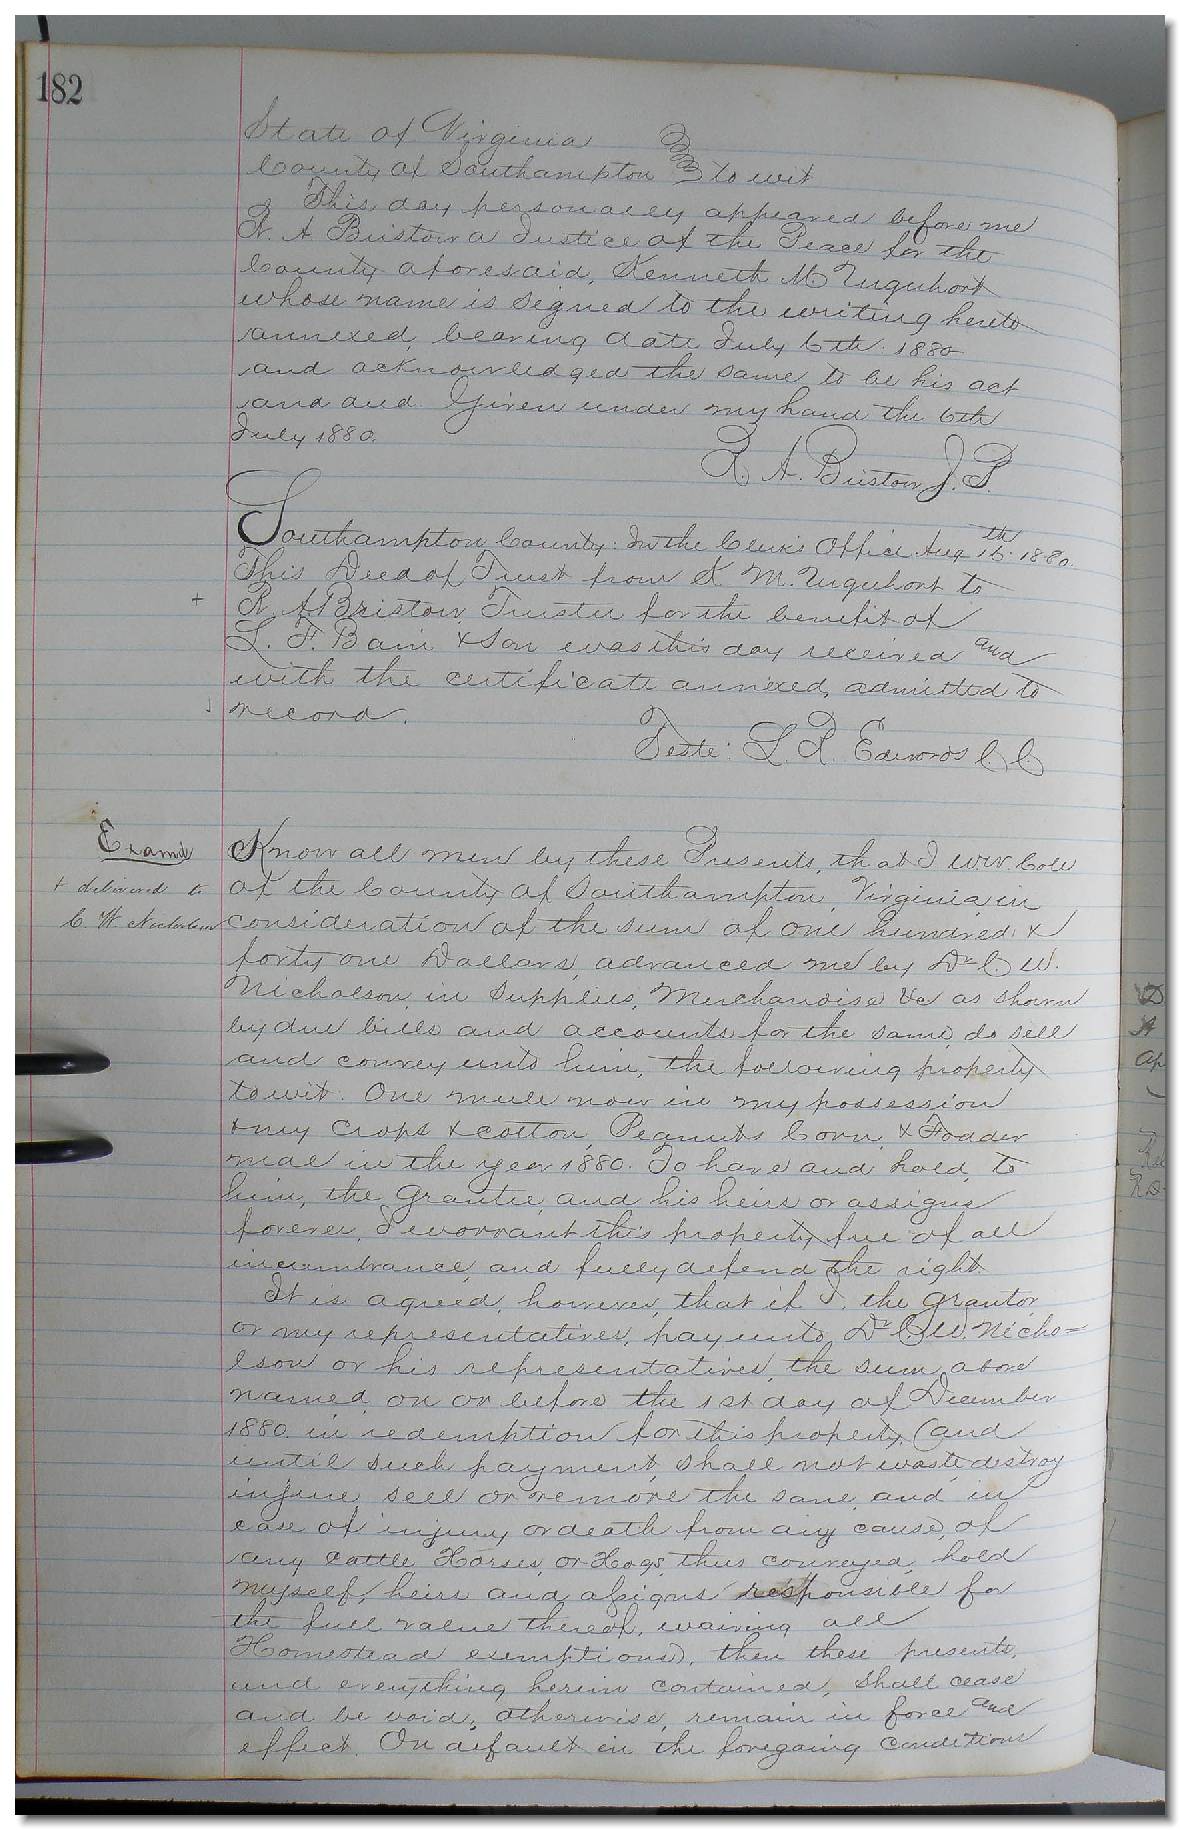 182
State of Virginia
County of Southampton to wit
This day personally appeared before me
R. A Bristow a Justice of the Peace for the
County aforesaid, Kenneth M. Urquhart
whose name is signed to the writing hereto
annexed, bearing date July 6th 1880
and acknowledged the same to be his act
and deed. Given under my hand the 6th
July 1880.
R. A. Bristow J. P.
Southampton County: In the Clerk's Office Aug 16th 1880.
This Deed of Trust from K. M. Urquhart to
+
R. A Bristow Trustee for the benefit of
L. F. Bain & Son was this day received and
with the certificate annexed, admitted to
record.
Teste: L. R. Edwards C C
Examd
& delivered to
C. W Nicholson
Know all men by these Presents, that I W.W. Cole
of the County of Southampton, Virginia, in
consideration of the sum of one hundred &
forty one Dollars, advanced me by Dr C. W.
Nicholson, in Supplies, Merchandise &c as shown
by due bills and accounts for the same, do sell
and convey unto him, the following property
to wit: One mule now in my possession
& my crops & cotton, Peanuts Corn, & Fodder
made in the year 1880. To have and hold, to
him, the Grantee, and his heirs or assigns
forever, I warrant this property free of all
incumbrance, and fully defend the right.
It is agreed, however, that if I, the grantor,
or my representatives, pay unto Dr C.W. Nicho=
lson or his representatives, the sum above
named, on or before the 1st day of December
1880, in redemption for this property, (and
until such payment, shall not waste, destroy
injure, sell or remove the same, and in
case of injury or death from any cause, of
any Cattle, Horses, or Hogs, thus conveyed, hold
myself, heirs and assigns responsible for
the full value thereof, waiving all
Homestead exemptions), then these presents,
and everything herein contained, shall cease
and be void, otherwise, remain in force and
effect. On default in the foregoing conditions